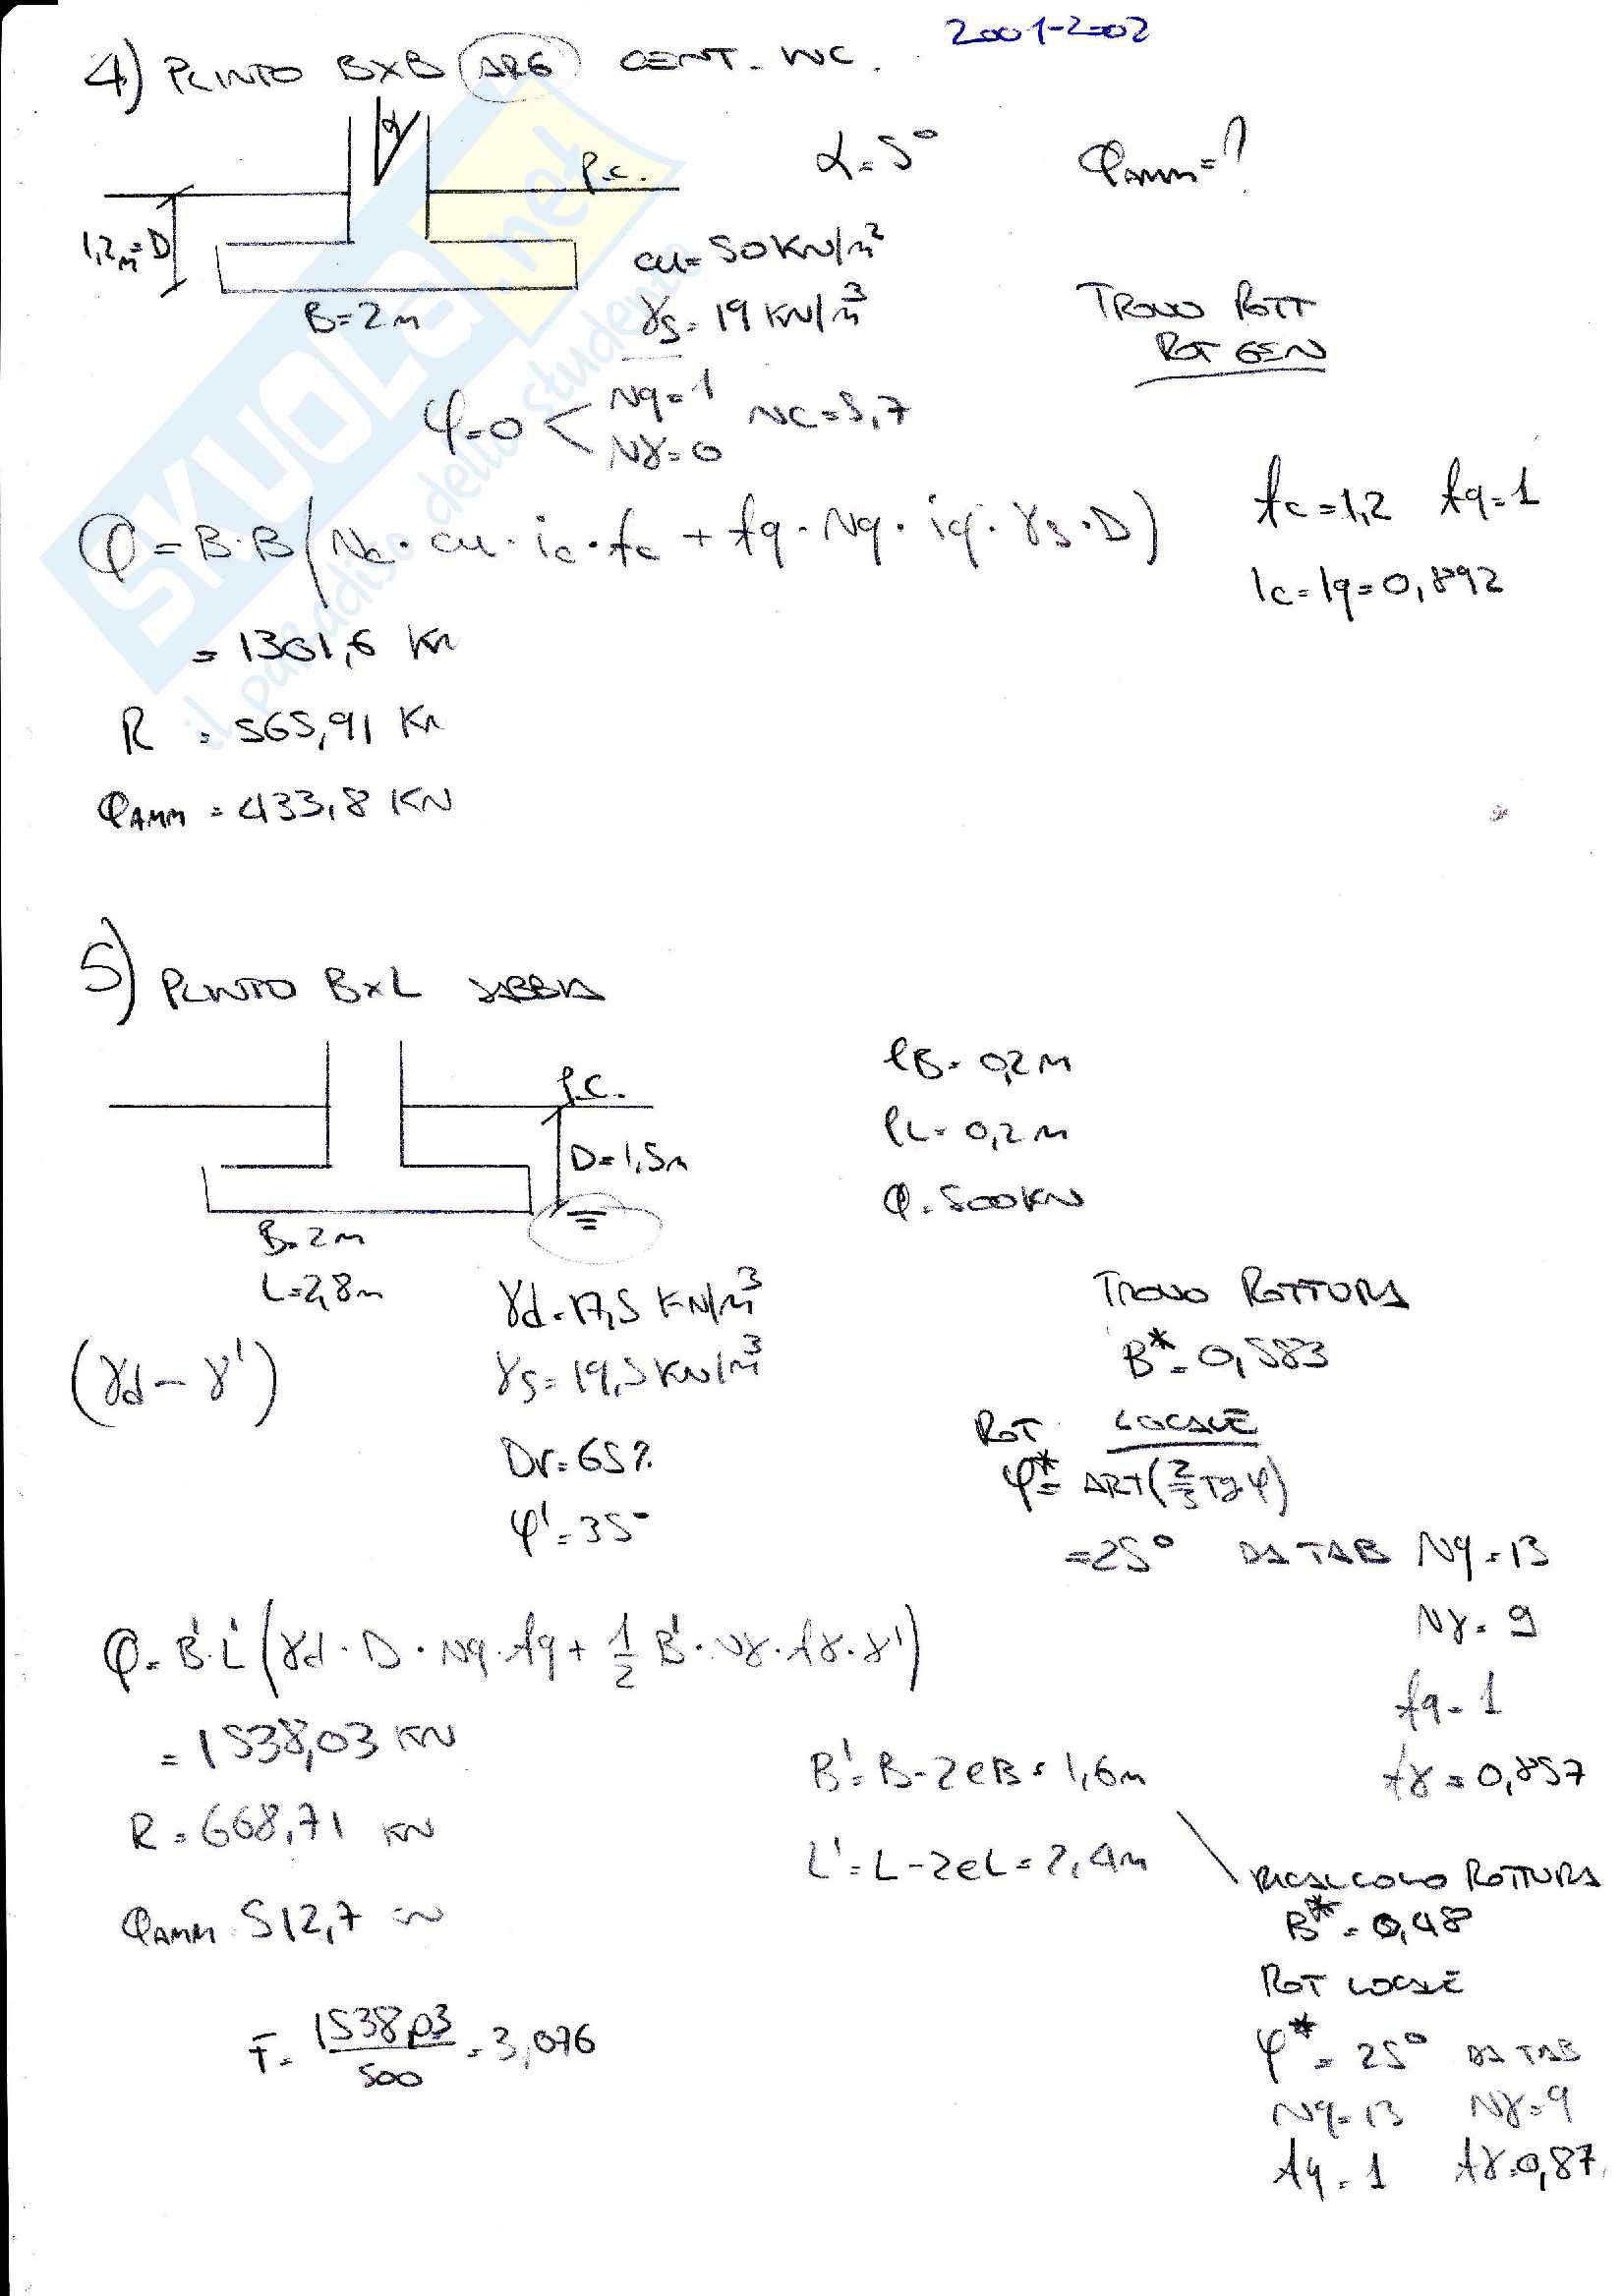 2001-2002
4) PLINTO BxB ARG CENT. INC.
α
p.c.
α = 5°
QAMM = ?
1,2m = D
B = 2m
cu = 50 KN/m²
γs = 19 KN/m³
TROVO ROTT
ROT GEN
φ = 0 < Nq = 1
Nγ = 0
NC = 5,7
Q = B·B (Nc · cu · ic · fc + fq · Nq · iq · γs · D)
fc = 1,2 fq = 1
ic = iq = 0,892
= 1301,6 KN
R = 565,91 KN
QAMM = 433,8 KN
5) PLINTO BxL SABBIA
p.c.
D = 1,5m
B = 2m
L = 2,8m
eB = 0,2 m
eL = 0,2 m
Q = 500 KN
γd = 17,5 KN/m³
(γd - γ')
γs = 19,5 KN/m³
Dr = 65%
φ' = 35°
TROVO ROTTURA
B* = 0,583
ROT LOCALE
φ* = ART(2/3 TGφ)
= 25° DA TAB Nq = 13
Nγ = 9
fq = 1
fγ = 0,857
Q = B'·L' (γd · D · Nq · fq + 1/2 B' · Nγ · fγ · γ')
= 1538,03 KN
R = 668,71 KN
QAMM = 512,7 KN
F = 1538,03/500 = 3,076
B' = B - 2eB = 1,6m
L' = L - 2eL = 2,4m
RICALCOLO ROTTURA
B* = 0,48
ROT LOCALE
φ* = 25° DA TAB
Nq = 13 Nγ = 9
fq = 1 fγ = 0,87
SKUOLA.net
il paradiso dello studente